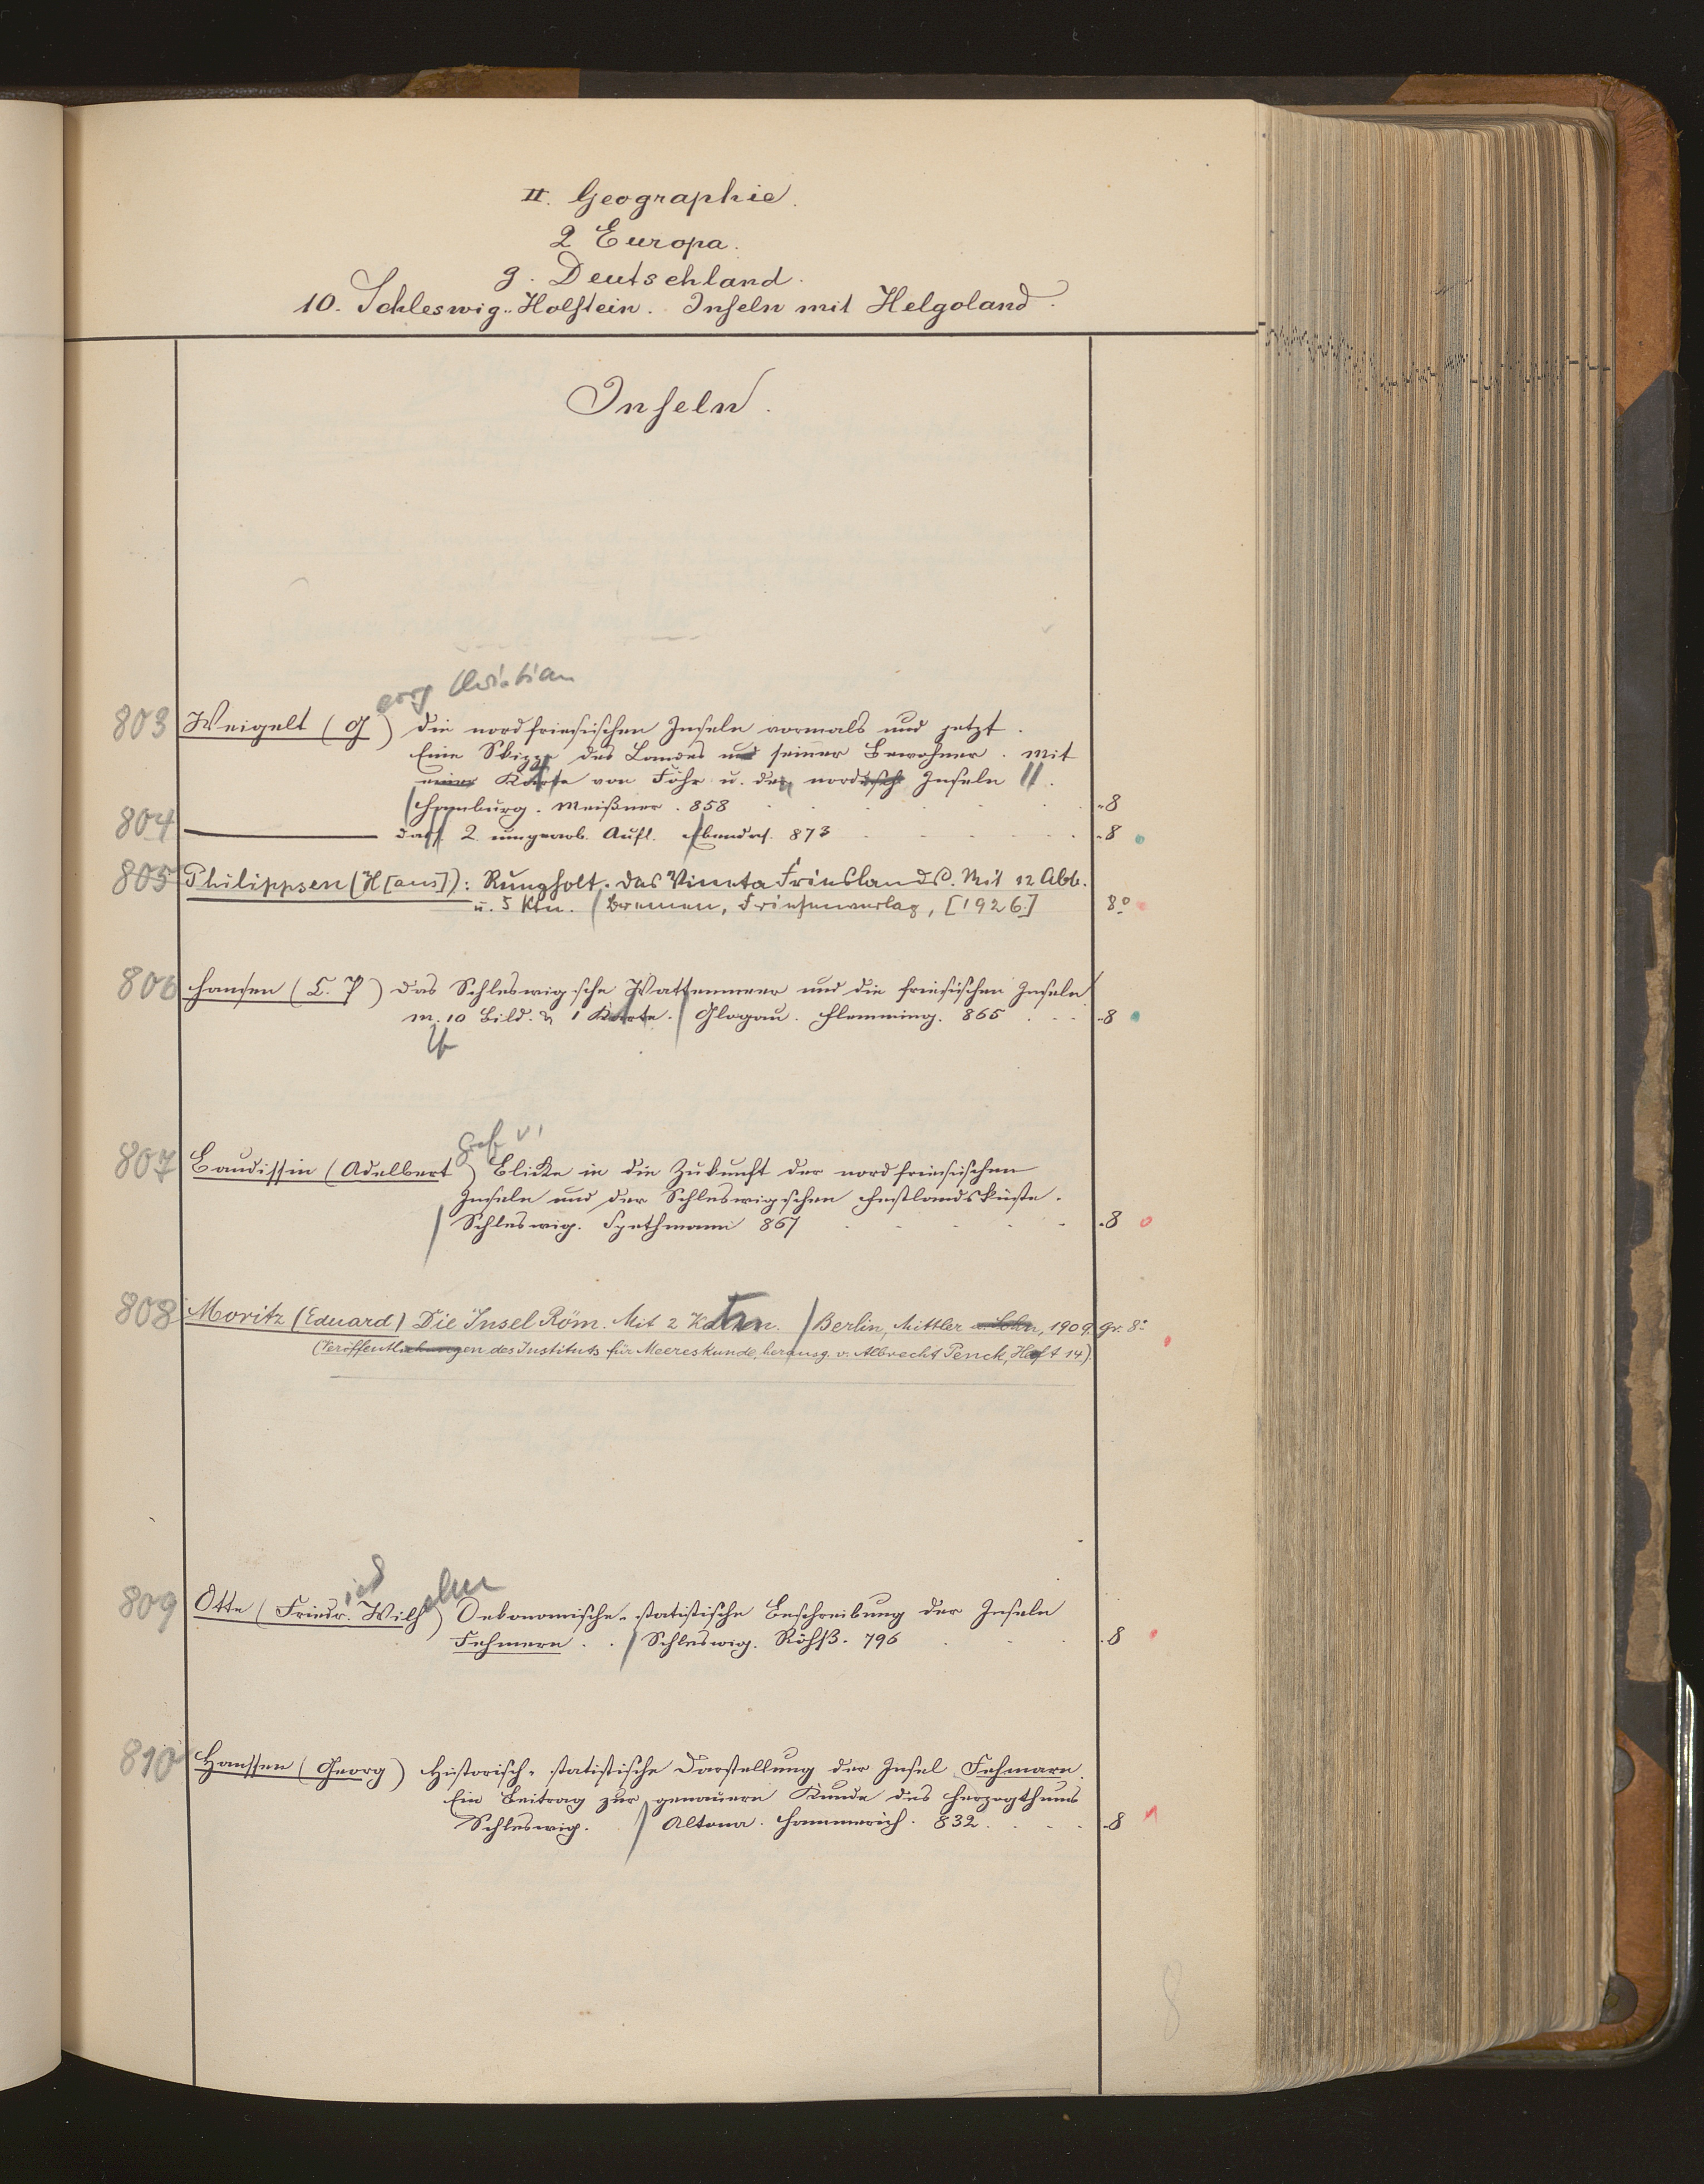 II. Geographie.
2 Europa.
g. Deutschland.
10. Schleswig-Holstein. Inseln mit Helgoland.
Inseln.
eorg Christian
803 Weigelt (G) die nordfriesischen Inseln vormals und jetzt.
Eine Skizze des Landes und seiner Bewohner. Mit
einer Karte von Föhr u. den nordischen Inseln
Hamburg. Meißner. 858 8
804 dass 2 umgearb. Aufl. Ebendas. 873 8
805 Philippsen (H[ans]): Rungholt. das Vineta Frieslands. Mit 12 Abb.
u. 5 Ktn. Bremen, Friesenverlag, [1926] 8°
806 Hansen (C. P) das Schleswig'sche Wattenmeer und die friesischen Inseln
m. 10 Bild. & 1 Karte. Glogau. Flemming. 865 8
Graf v
807 Baudissin (Adelbert) Blicke in die Zukunft der nordfriesischen
Inseln und der Schleswigschen Festlandsküste.
Schleswig. Spethmann 867 8
808 Moritz (Eduard) Die Insel Röm. Mit 2 Karten. Berlin, Mittler u. Sohn, 1909. gr. 8°
(Veröffentlichungen des Instituts für Meereskunde, herausg. v. Albrecht Penck, Heft 14).
ied elm
809 Otte (Friedr. Wilh) Oekonomische-statistische Beschreibung der Inseln
Fehmern. Schleswig. Röhß. 796 8
810 Hanssen (Georg) Historisch-statistische Darstellung der Insel Fehmarn.
Ein Beitrag zur genauern Kunde des Herzogthums
Schleswig. Altona. Hammerich. 832. 8
8